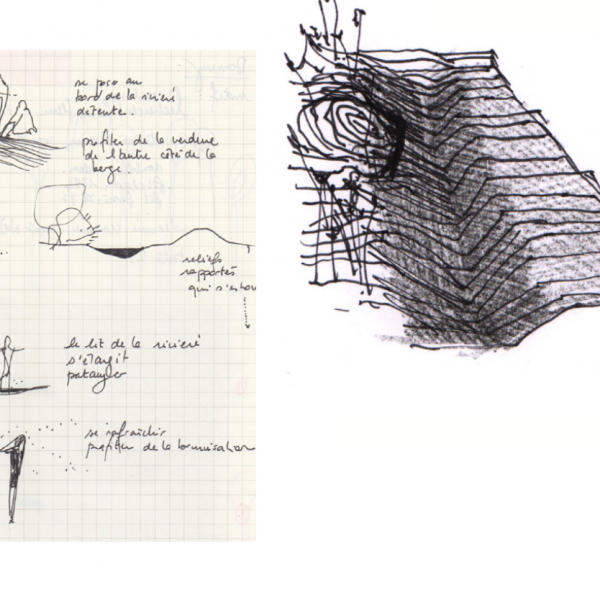 se pose au
bord de la rivière
détente.
profiter de la verdure
de l'autre côté de la
berge
reliefs
rapportés
qui s'estom
le lit de la rivière
s'élargit
patauger
se rafraîchir
profiter de la brumisation